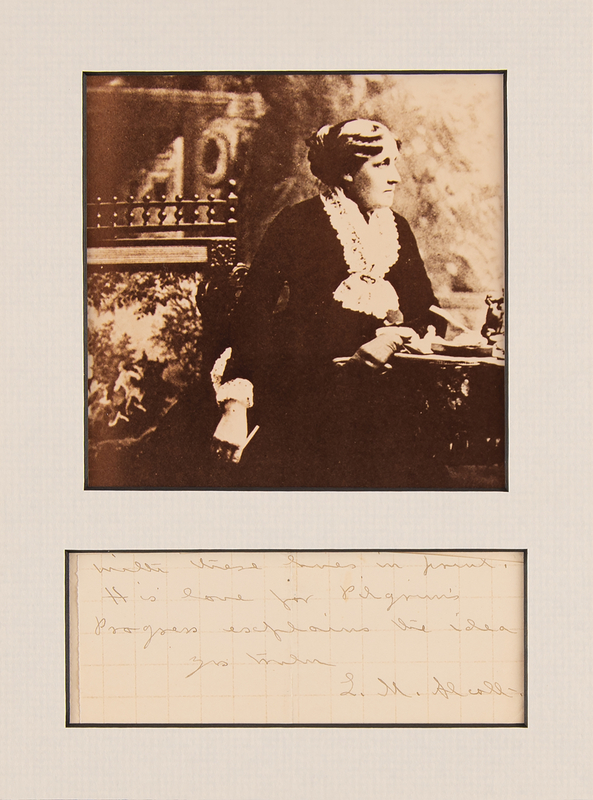 these in print.
His love for Pilgrim's
Progress explains the idea
yrs truly
L. M. Alcott.